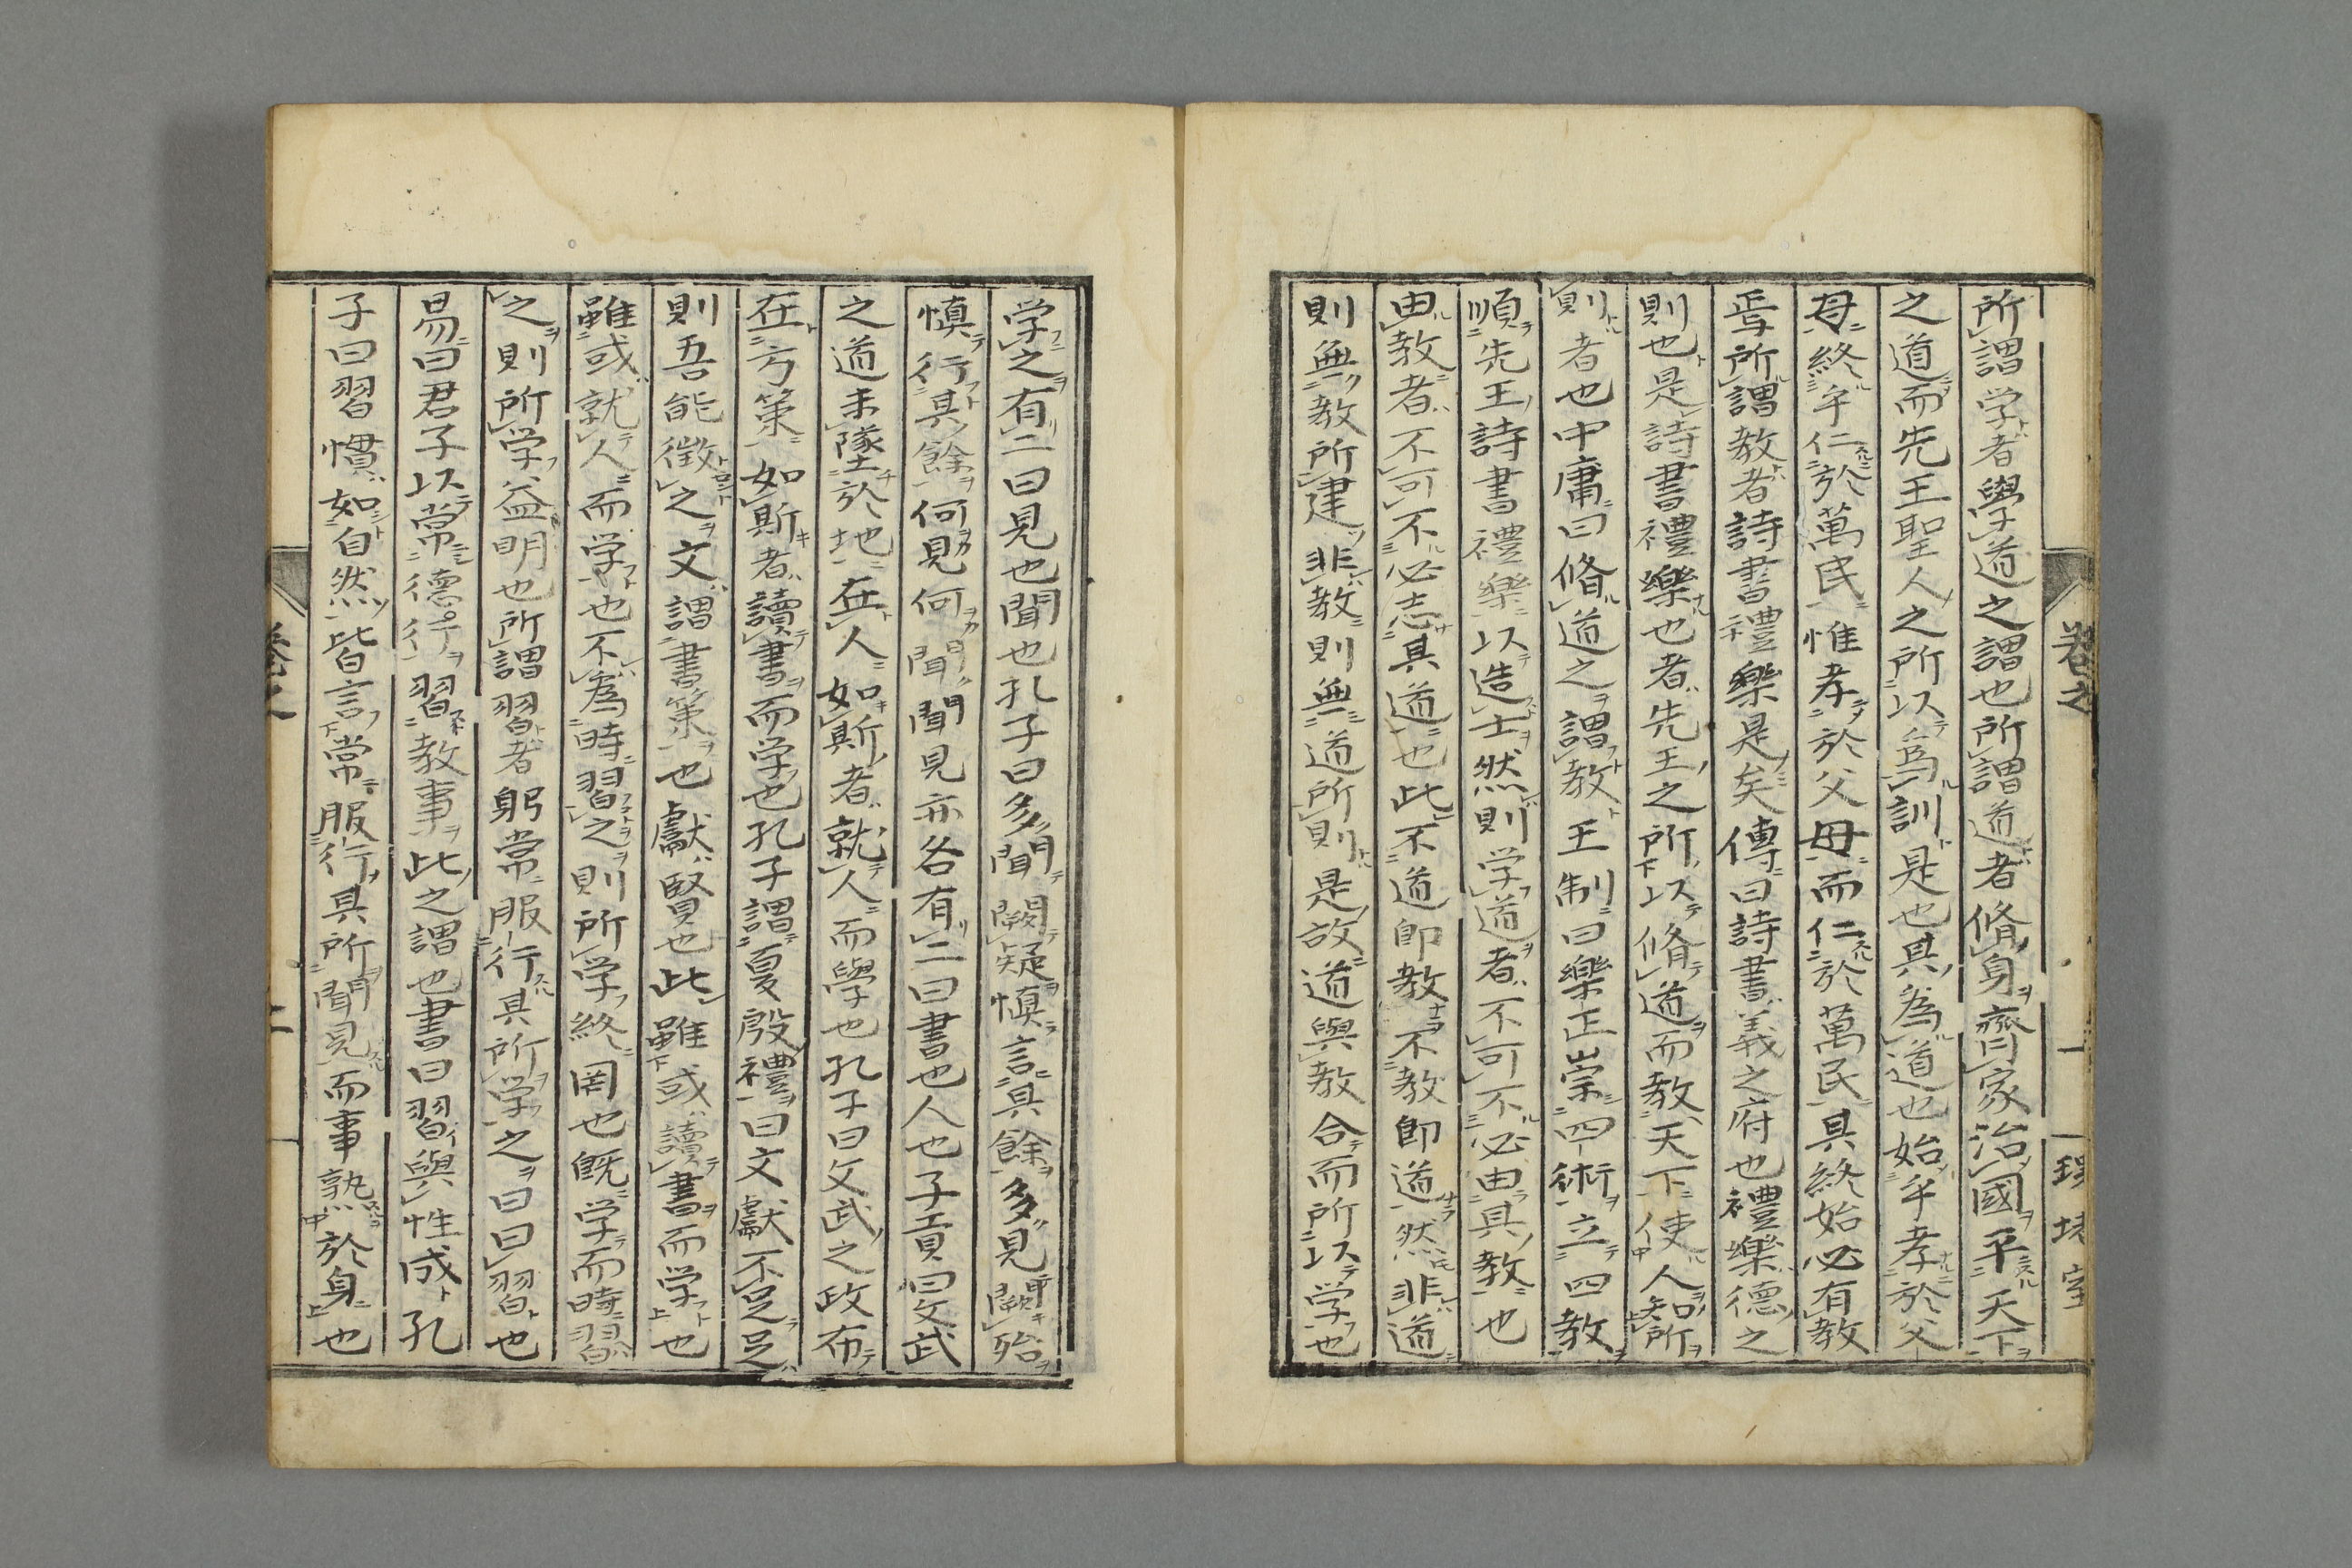 所謂学者學道之謂也所謂道者脩身齊家治國平天下
之道而先王聖人之所以爲訓是也其為道也始乎孝於父
母終乎仁於萬民惟孝於父母而仁於萬民其終始必有教
焉所謂教者詩書禮樂是矣傳曰詩書義之府也禮樂德之
則也是詩書禮樂也者先王之所以脩道而教天下使人知所
則者也中庸曰脩道之謂教王制曰樂正崇四術立四教
順先王詩書禮樂以造士然則学道者不可不必由其教也
由教者不可不必志其道也此不道即教不教即道然非道
則無教所建非教則無道所則是故道與教合而所以学也
学之有二曰見也聞也孔子曰多聞闕疑慎言其餘多見闕殆
慎行其餘何見何聞聞見亦各有二曰書也人也子貢曰文武
之道未墜於地在人如斯者就人而學也孔子曰文武之政布
在方策如斯者讀書而学也孔子謂夏殷禮曰文獻不足足
則吾能徴之文謂書策也獻賢也此雖或讀書而学也
雖或就人而学也不為時習之則所学終罔也既学而時習
之則所学益明也所謂習者躬常服行其所学之曰曰習也
易曰君子以常德行習教事此之謂也書曰習與性成孔
子曰習慣如自然皆言常服行其所聞見而事熟於身也
卷之
一